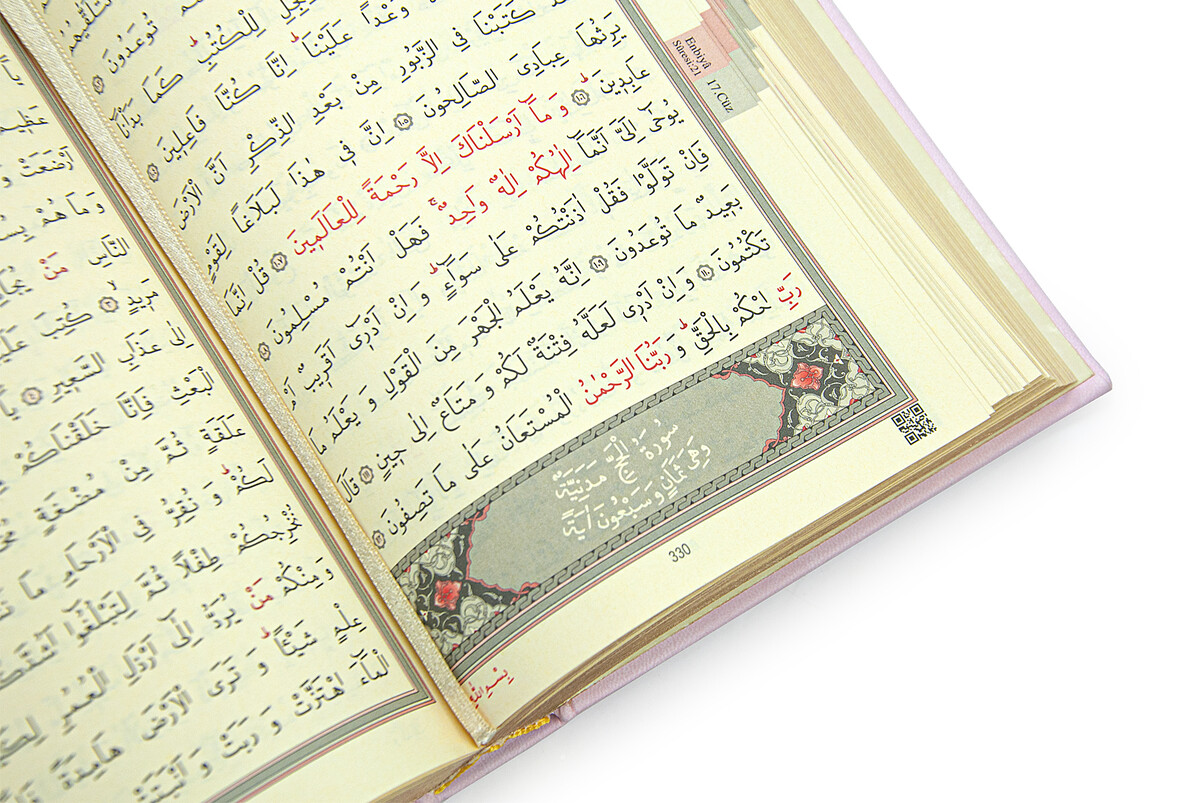 تُوعَدُونَ ١٠٣
لِلْكُتُبِ كَمَا بَدَأْنَا
وَعْدًا عَلَيْنَا اِنَّا كُنَّا فَاعِلٖينَ ١٠٤
كَتَبْنَا فِي الزَّبُورِ مِنْ بَعْدِ الذِّكْرِ اَنَّ الْاَرْضَ
يَرِثُهَا عِبَادِيَ الصَّالِحُونَ ١٠٥ اِنَّ فٖي هٰذَا لَبَلَاغًا لِقَوْمٍ
عَابِدٖينَ ١٠٦ وَمَٓا اَرْسَلْنَاكَ اِلَّا رَحْمَةً لِلْعَالَمٖينَ ١٠٧ قُلْ اِنَّمَا
يُوحٰٓى اِلَيَّ اَنَّمَٓا اِلٰهُكُمْ اِلٰهٌ وَاحِدٌ فَهَلْ اَنْتُمْ مُسْلِمُونَ ١٠٨
فَاِنْ تَوَلَّوْا فَقُلْ اٰذَنْتُكُمْ عَلٰى سَوَآءٍ وَاِنْ اَدْرٖٓى اَقَرٖيبٌ اَمْ
بَعٖيدٌ مَا تُوعَدُونَ ١٠٩ اِنَّهُ يَعْلَمُ الْجَهْرَ مِنَ الْقَوْلِ وَيَعْلَمُ مَا
تَكْتُمُونَ ١١٠ وَاِنْ اَدْرٖى لَعَلَّهُ فِتْنَةٌ لَكُمْ وَمَتَاعٌ اِلٰى حٖينٍ ١١١ قَالَ
رَبِّ احْكُمْ بِالْحَقِّ وَرَبُّنَا الرَّحْمٰنُ الْمُسْتَعَانُ عَلٰى مَا تَصِفُونَ ١١٢
سُورَةُ الْحَجِّ مَدَنِيَّةٌ
وَهِيَ ثَمَانٍ وَسَبْعُونَ اٰيَةً
330
بِسْمِ اللّٰهِ
Enbiyâ
Sûresi:21
17.Cüz
عَظٖيمٌ
اَرْضَعَتْ وَ
وَمَا هُمْ
النَّاسِ مَنْ
مَرٖيدٍ ٣ كُتِبَ
اِلٰى عَذَابِ السَّعٖيرِ ٤
الْبَعْثِ فَاِنَّا خَلَقْنَاكُمْ
عَلَقَةٍ ثُمَّ مِنْ مُضْغَةٍ
لَكُمْ وَنُقِرُّ فِي الْاَرْحَامِ مَا
نُخْرِجُكُمْ طِفْلًا ثُمَّ لِتَبْلُغُٓوا
وَمِنْكُمْ مَنْ يُرَدُّ اِلٰٓى اَرْذَلِ الْعُمُرِ
عِلْمٍ شَيْئًا وَتَرَى الْاَرْضَ هَامِدَةً
الْمَٓاءَ اهْتَزَّتْ وَرَبَتْ وَاَنْبَتَتْ